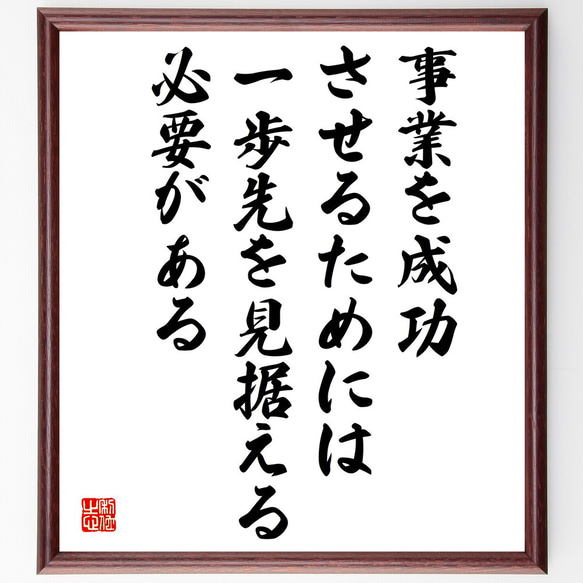 事業を成功
させるためには
一歩先を見据える
必要がある